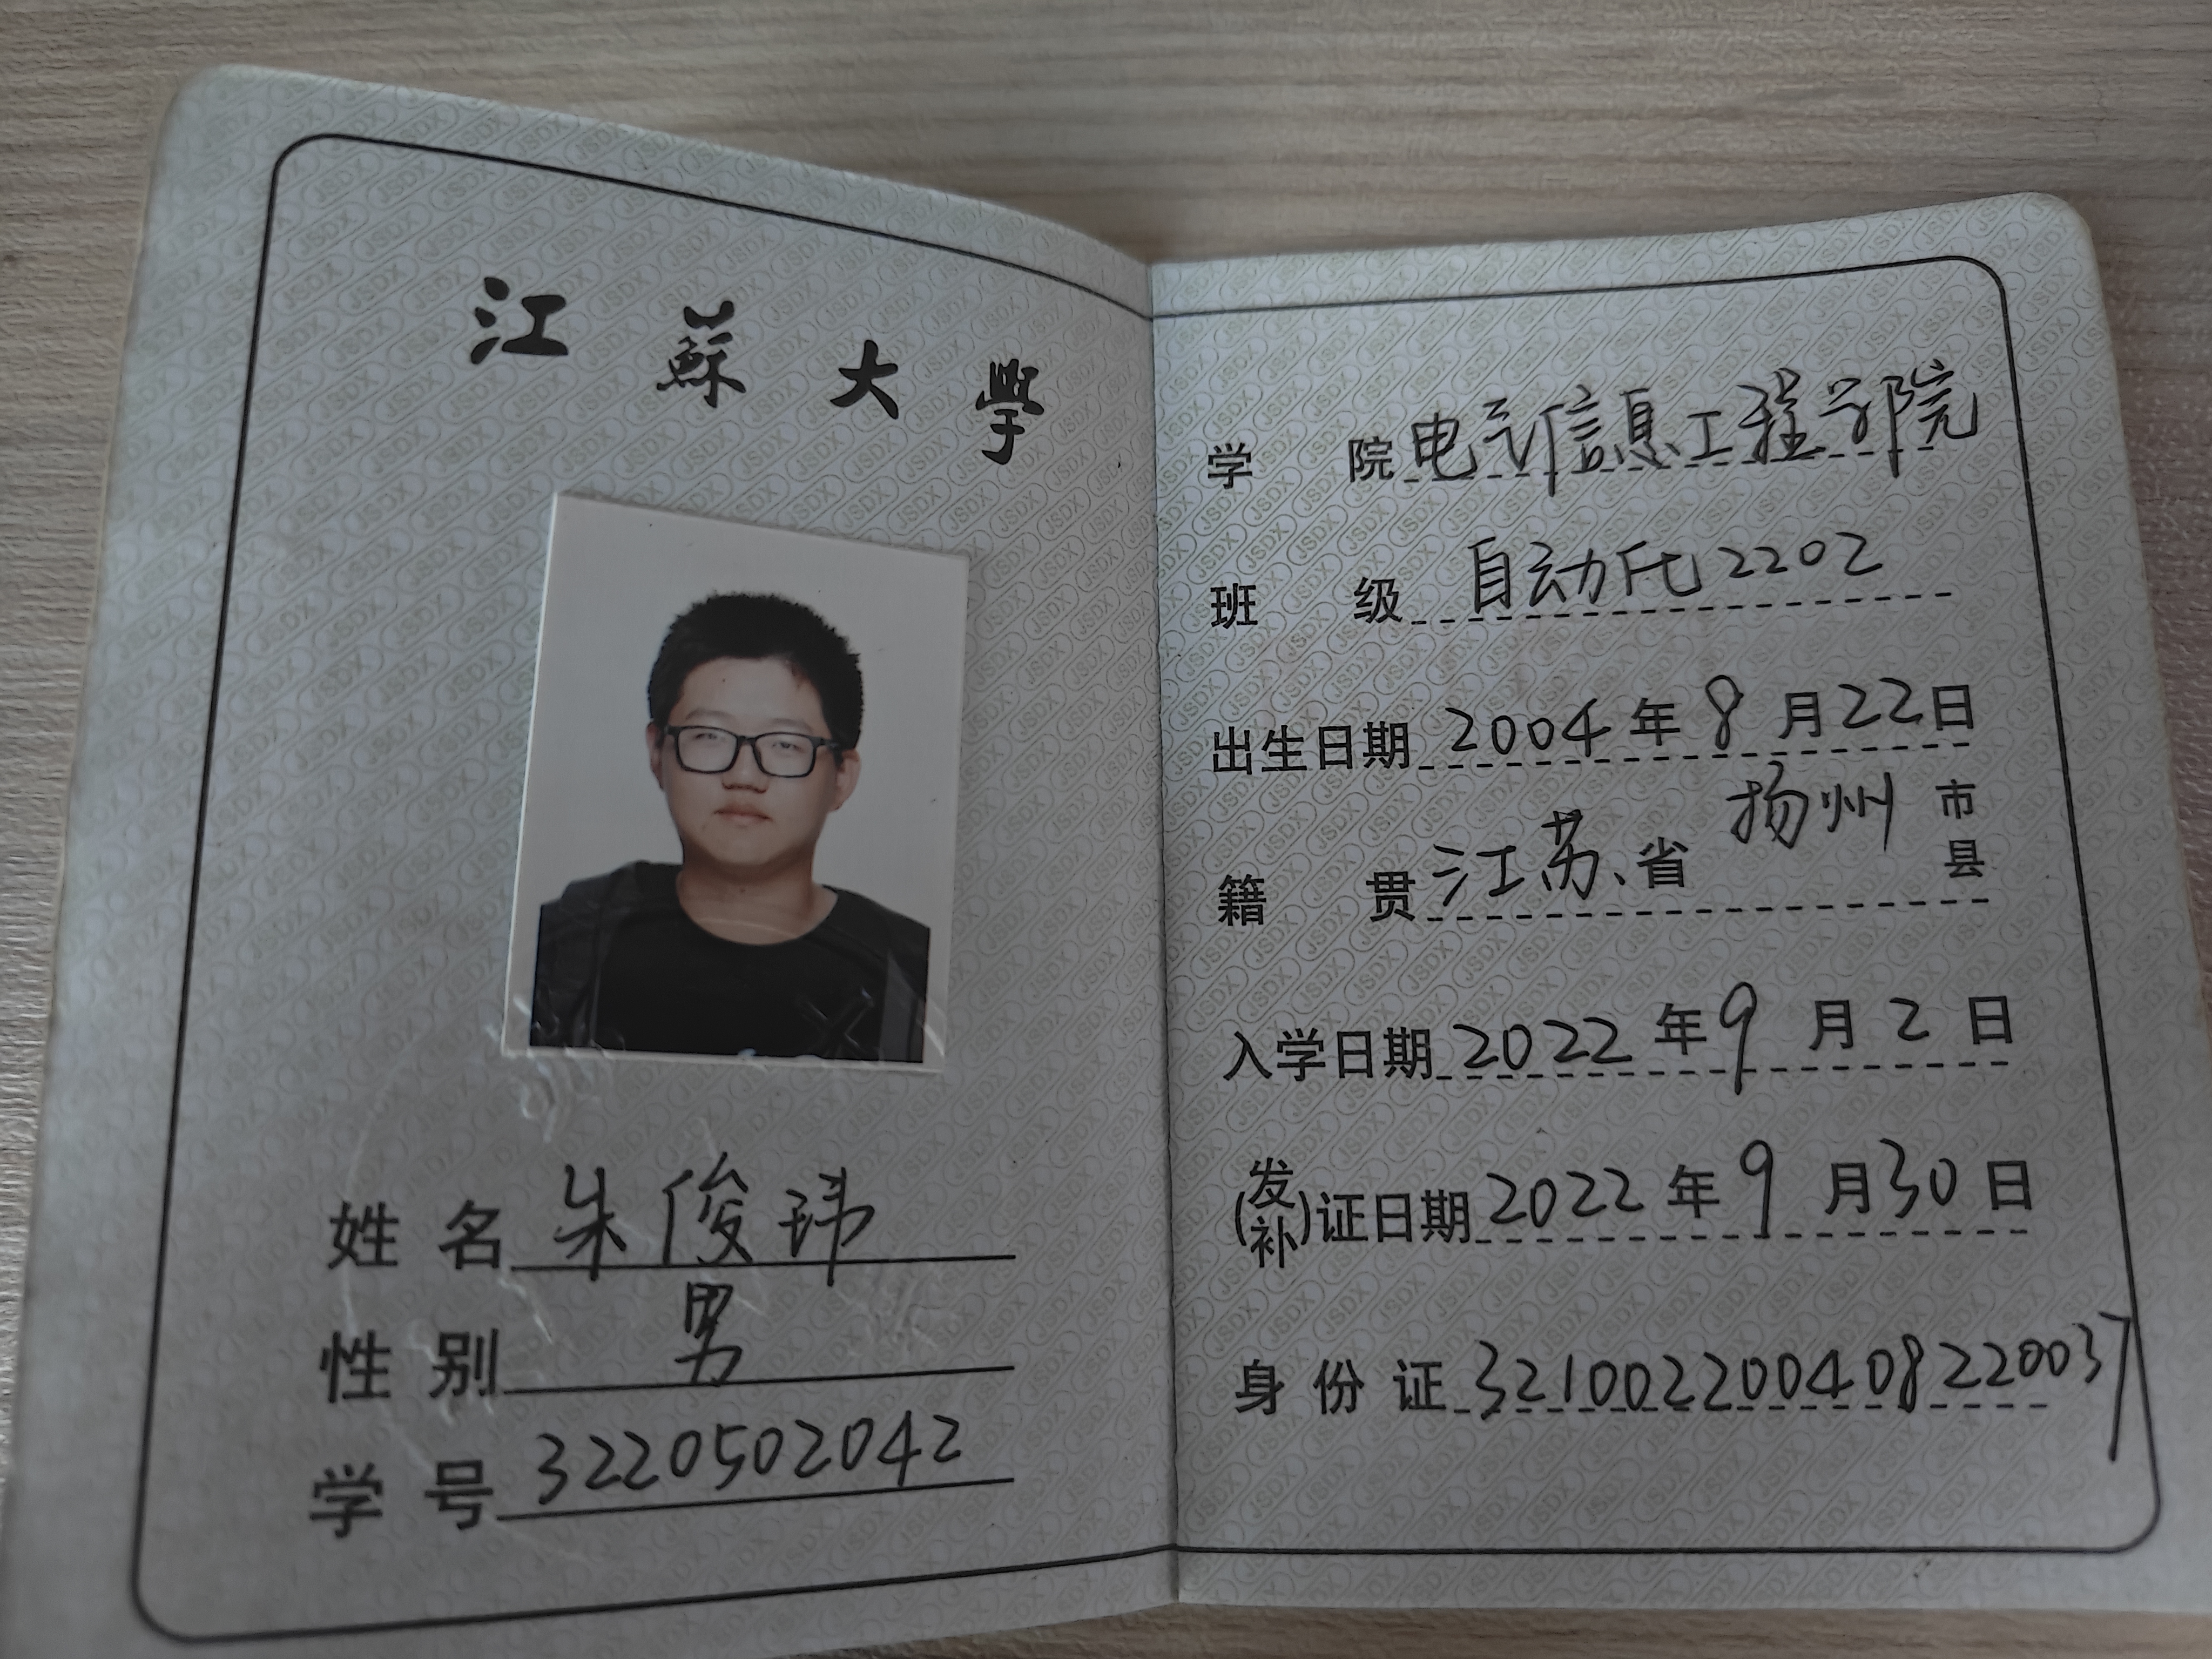 江蘇大學
姓名 朱俊玮
性别 男
学号 3220502042
学院 电气信息工程学院
班级 自动化2202
出生日期 2004年8月22日
籍贯 江苏省 扬州 市县
入学日期 2022年9月2日
(发补)证日期 2022年9月30日
身份证 321002200408220037